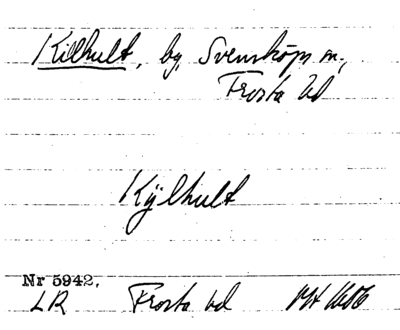 Killhult, by, Svensköps sn,
Frosta hd
Kÿlhult
Nr 5942,
LR Frosta hd